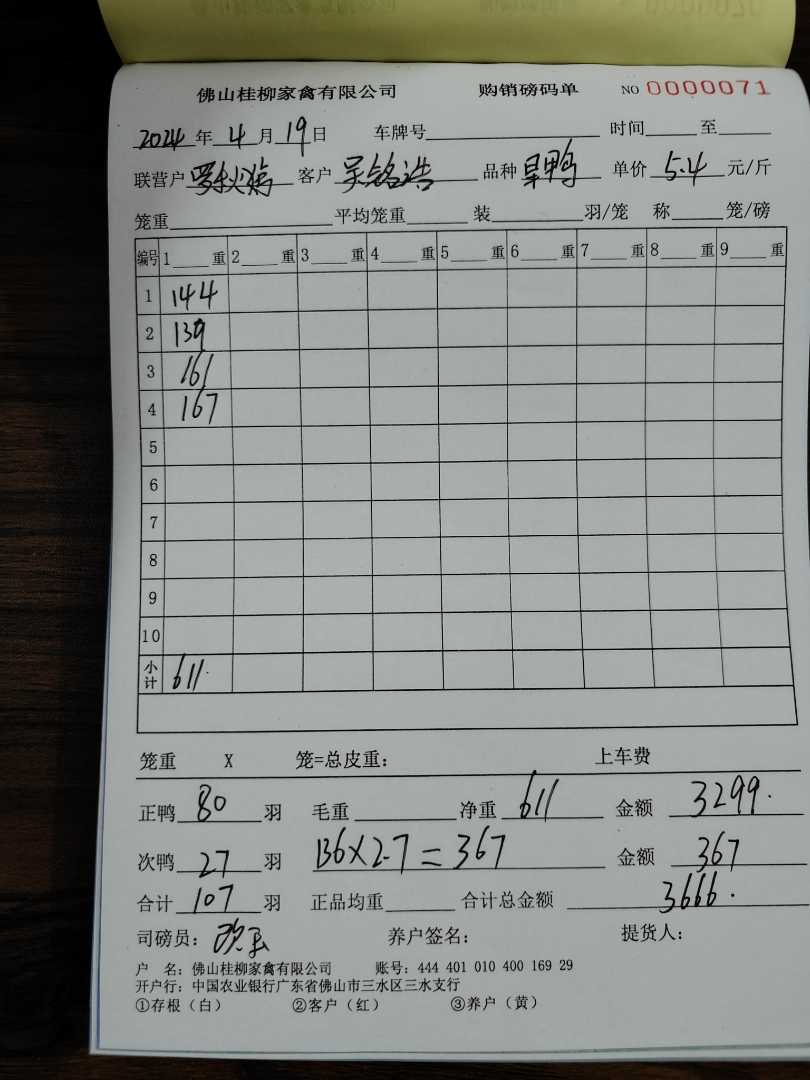 佛山桂柳家禽有限公司 购销磅码单 NO 0000071
2024年4月19日 车牌号 时间 至
联营户 客户 吴铭浩 品种 旱鸭 单价 5.4 元/斤
笼重 平均笼重 装 羽/笼 称 笼/磅
编号 1 重 2 重 3 重 4 重 5 重 6 重 7 重 8 重 9 重
1 144
2 139
3 161
4 167
5
6
7
8
9
10
小计 611.
笼重 X 笼=总皮重: 上车费
正鸭 80 羽 毛重 净重 611 金额 3299.
次鸭 27 羽 136×2.7=367 金额 367
合计 107 羽 正品均重 合计总金额 3666.
司磅员: 养户签名: 提货人:
户 名: 佛山桂柳家禽有限公司 账号: 444 401 010 400 169 29
开户行: 中国农业银行广东省佛山市三水区三水支行
①存根(白) ②客户(红) ③养户(黄)